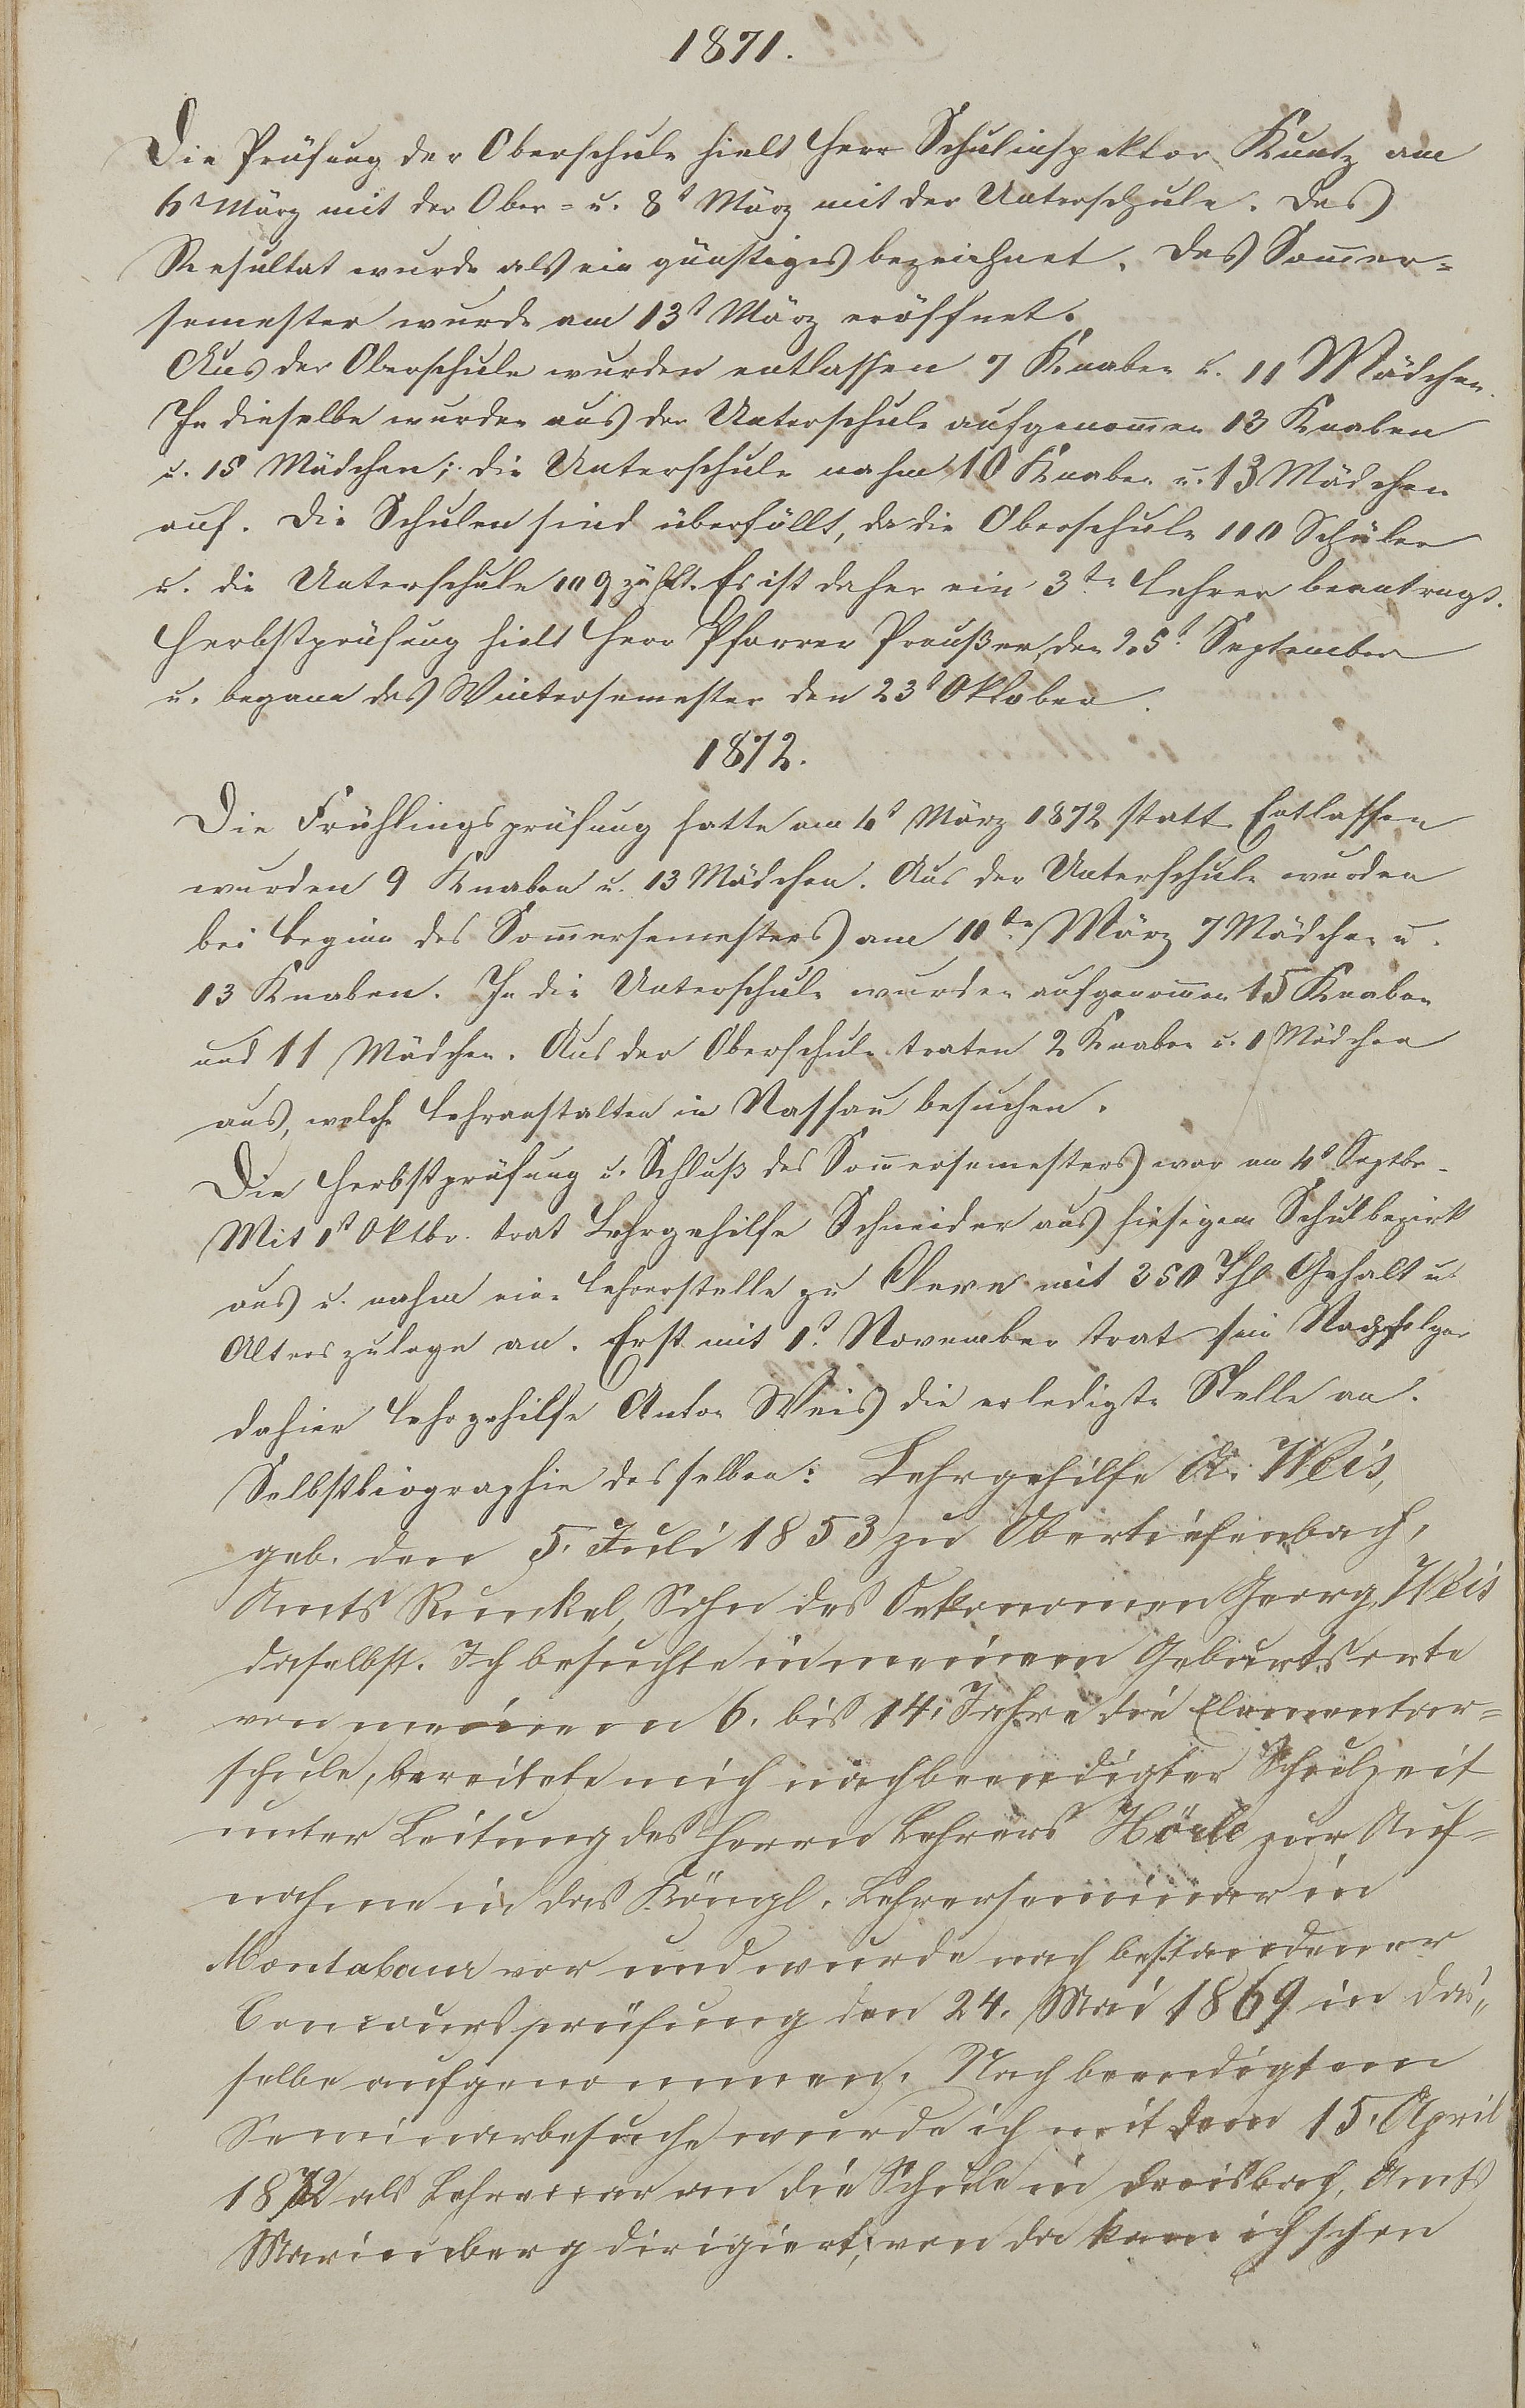 1871.
Die Prüfung der Oberschule hielt Herr Schulinspektor Kuntz am
6t März mit der Ober- u. 8t März mit der Unterschule. Das
Resultat wurde als ein günstiges bezeichnet. Das Som̄er-
semester wurde am 13t März eröffnet.
Aus der Oberschule wurden entlassen 7 Knaben u. 11 Mädchen.
In dieselbe wurden aus der Unterschule aufgenom̄en 13 Knaben
u. 15 Mädchen; die Unterschule nahm 10 Knaben u. 13 Mädchen
auf. Die Schulen sind überfüllt, da die Oberschule 110 Schüler
u. die Unterschule 119 zählt. Es ist daher ein 3ter Lehrer beantragt.
Herbstprüfung hielt Herr Pfarrer Preußer, den 25t September
u. begann das Wintersemester den 23t Oktober.
1872.
Die Frühlingsprüfung hatte am 4t März 1872 statt. Entlassen
wurden 9 Knaben u. 13 Mädchen. Aus der Unterschule wurden
bei Beginn des Som̄ersemesters am 11ten März 7 Mädchen u.
13 Knaben. In die Unterschule wurden aufgenom̄en 15 Knaben
und 11 Mädchen. Aus der Oberschule traten 2 Knaben u. 1 Mädchen
aus, welche Lehranstalten in Nassau besuchen.
Die Herbstprüfung u. Schluß des Som̄ersemesters war am 4t Septbr.
Mit 1t Oktbr. trat Lehrgehilfe Schneider aus hiesigem Schulbezirk
aus u. nahm eine Lehrerstelle zu Cleve mit 350 Thl Gehalt u.
Alterszulage an. Erst mit 1t November trat sein Nachfolger
dahier Lehrgehilfe Anton Weis die erledigte Stelle an.
Selbstbiographie desselben: Lehrgehilfe A. Weis,
geb. den 5. Juli 1853 zu Obertiefenbach,
Amts Runkel, Sohn des Oekonomen Georg Weis
daselbst. Ich besuchte in meinem Geburtsorte
von meinem 6. bis 14. Jahre die Elementar-
schule, bereitete mich nach beendigter Schulzeit
unter Leitung des Herrn Lehrers Hörle zur Auf-
nahme in das Köngl. Lehrerseminar in
Montabaur vor und wurde nach bestandener
Concursprüfung den 24. Mai 1869 in das„
selbe aufgenommen. Nach beendigtem
Seminarbesuche wurde ich mit dem 15. April
1872 als Lehrer an die Schule in Dreisbach, Amts
Marienberg dirigiert; von da kam ich schon